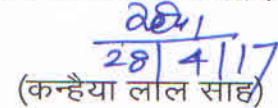 28/4/17
(कन्हैया लाल साहू)